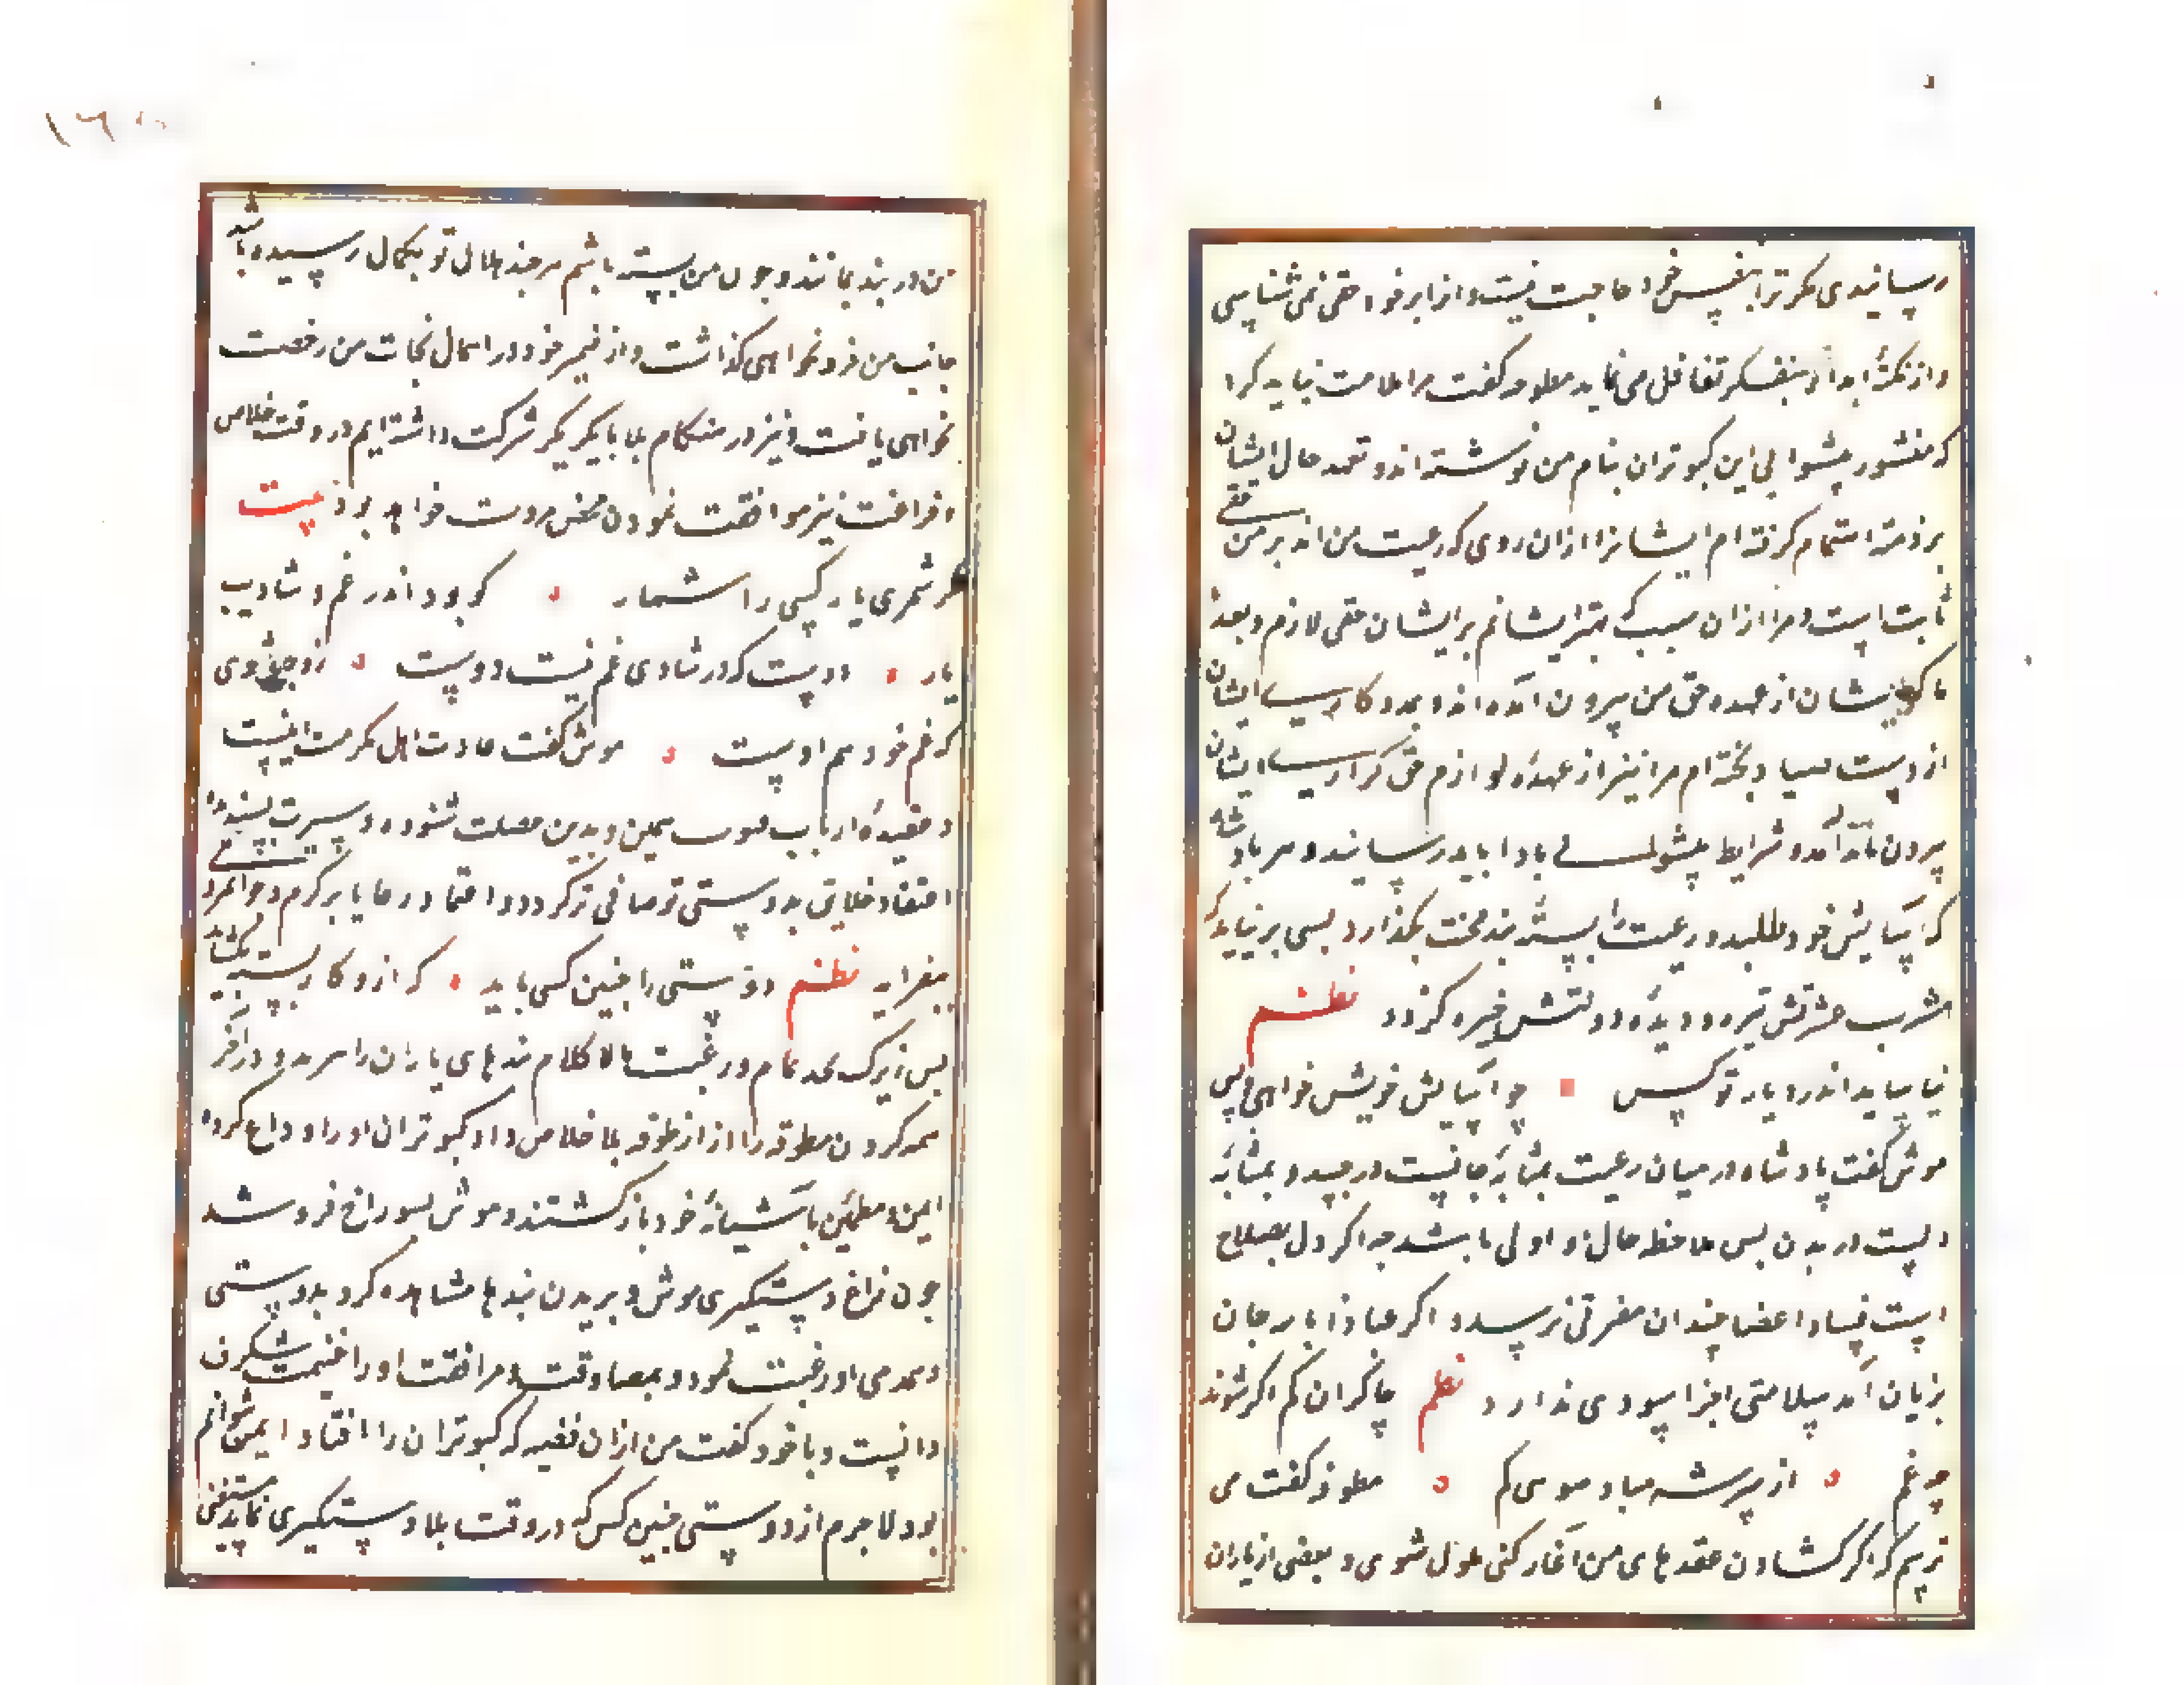 رسانیدی مکر ترا بنفس خود حاجت نیست و از ابر خود حقی نمی شناسی
و از نکتهٔ ابدأ بنفسک تغافل می نماید مطوقه کفت مرا ملامت نباید کرد
که منشور پیشوایی این کبوتران بنام من نوشته اند و تعهد حال ایشان
بر ذمهٔ اهتمام کرفته ام ایشانرا ازان روی که رعیت من اند بر من حقی
ثابت است و مرا ازان سبب که مهتر ایشانم بر ایشان حقی لازم و بعد
ما که ایشان از عهده حق من بیرون آمده اند و بمدد کاری ایشان
از دست صیاد بجسته ام مرا نیز از عهدهٔ لوازم حق کزاری ایشان
بیرون باید آمد و شرایط پیشوایی بادا باید رسانید و هر پادشاه
که آسایش خود طلبد و رعیت را بستهٔ بند محنت بکذارد بسی برنیاید که
مشرب عشرتش تیره و دیدهٔ دولتش خیره کردد نظم
نیاساید اندر دیار تو کس چو آسایش خویش خواهی و بس
موش کفت پادشاه در میان رعیت بمثابهٔ جانیست در جسد و بمثابهٔ
دلست در بدن بس ملاحظه حال او اولی باشد چه اکر دل بصلاح
است فساد اعضا چندان مضرتی نرسد و اکر عیاذا بالله جان
بزیان آمد سلامتی اجزا سودی ندارد نظم چاکران کم اکر شوند
چه غم از سر شه مباد مویی کم مطوقه کفت می
ترسم که اکر کشادن عقدهای من آغاز کنی ملول شوی و بعضی از یاران
من در بند بمانند و چون من بسته باشم هر چند ملال تو بکمال رسیده باشد
جانب من فرو نخواهی کذاشت و از ضمیر خود در اهمال نجات من رخصت
نخواهی یافت و نیز در هنکام بلا با یکدیکر شرکت داشته ایم در وقت خلاص
و فراغت نیز موافقت نمودن محض مروت خواهد بود بیت
کر شمری یار کسی را شمار کو بود اندر غم و شادیت
یار دوست که در شادی غم نیست دوست زو چه شوی
که غم خود هم اوست موش کفت عادت اهل مکرمت اینست
و عقیدهٔ ارباب فتوت همین و بدین خصلت ستوده و سیرت پسندیده
اعتقاد خلایق بدوستی تو صافی تر کردد و اعتماد رعایا بر کرم و جوانمردی
بیفزاید نظم دوستی را چنین کسی باید که ازو کار بسته بکشاید
بس زیرک بجد تمام و رغبت مالا کلام بندهای یاران را ببرید و در آخر
همه کردن مطوقه را از طوق بلا خلاص داد کبوتران او را وداع کرده
ایمن و مطمئن با آشیانهٔ خود باز کشتند و موش بسوراخ فرو شد
چون زاغ دستکیری موش و بریدن بندها مشاهده کرد بدوستی
و همدمی او رغبت نمود و بمصادقت و مرافقت او را غنیمت شکرف
دانست و با خود کفت من ازان قضیه که کبوتران را افتاد ایمن نتوانم
بود لاجرم از دوستی چنین کس که در وقت بلا دستکیری نماید مستغنی